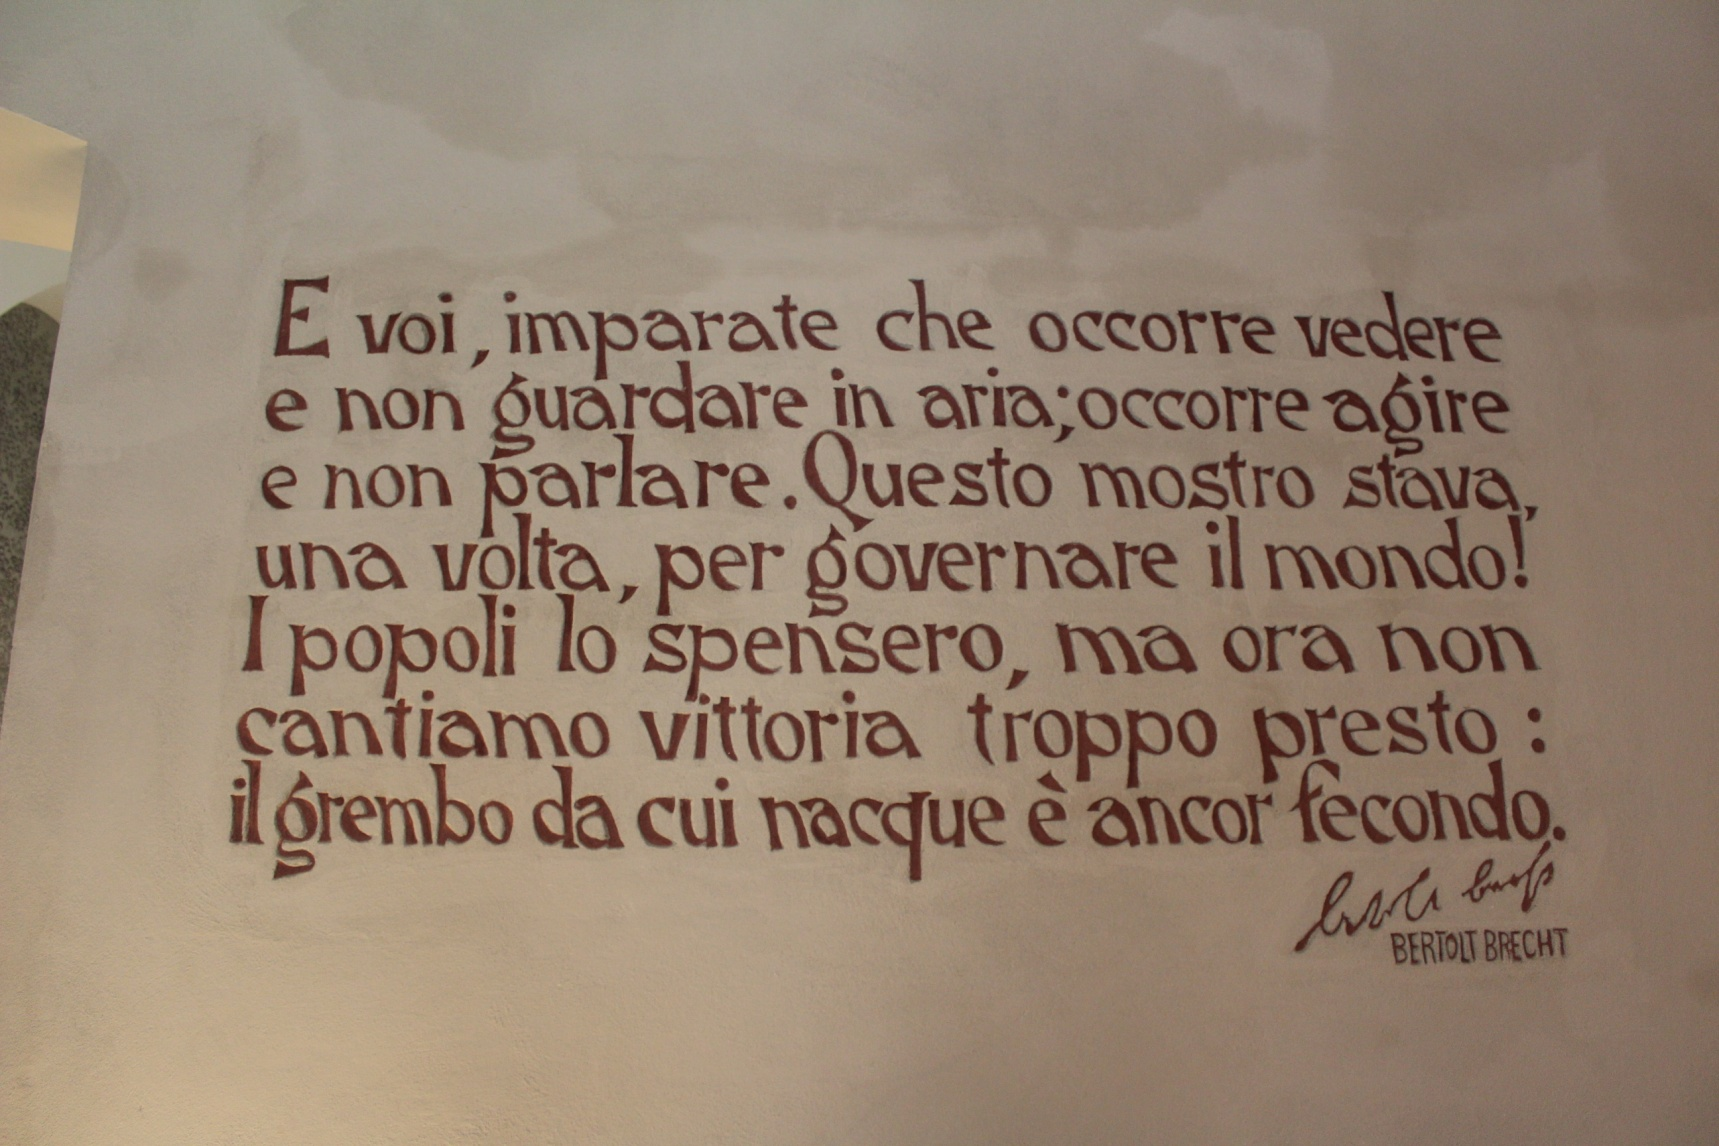 E voi, imparate che occorre vedere
e non guardare in aria; occorre agire
e non parlare. Questo mostro stava,
una volta, per governare il mondo!
I popoli lo spensero, ma ora non
cantiamo vittoria troppo presto :
il grembo da cui nacque è ancor fecondo.
bertolt brecht
BERTOLT BRECHT